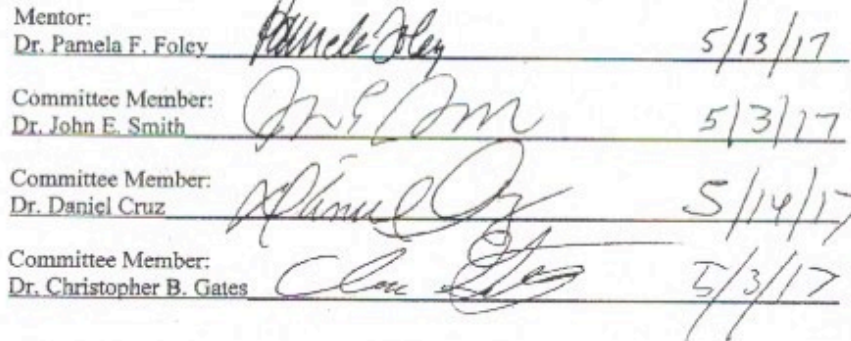 Mentor:
Dr. Pamela F. Foley Pamela Foley 5/13/17
Committee Member:
Dr. John E. Smith 5/3/17
Committee Member:
Dr. Daniel Cruz 5/14/17
Committee Member:
Dr. Christopher B. Gates 5/3/17